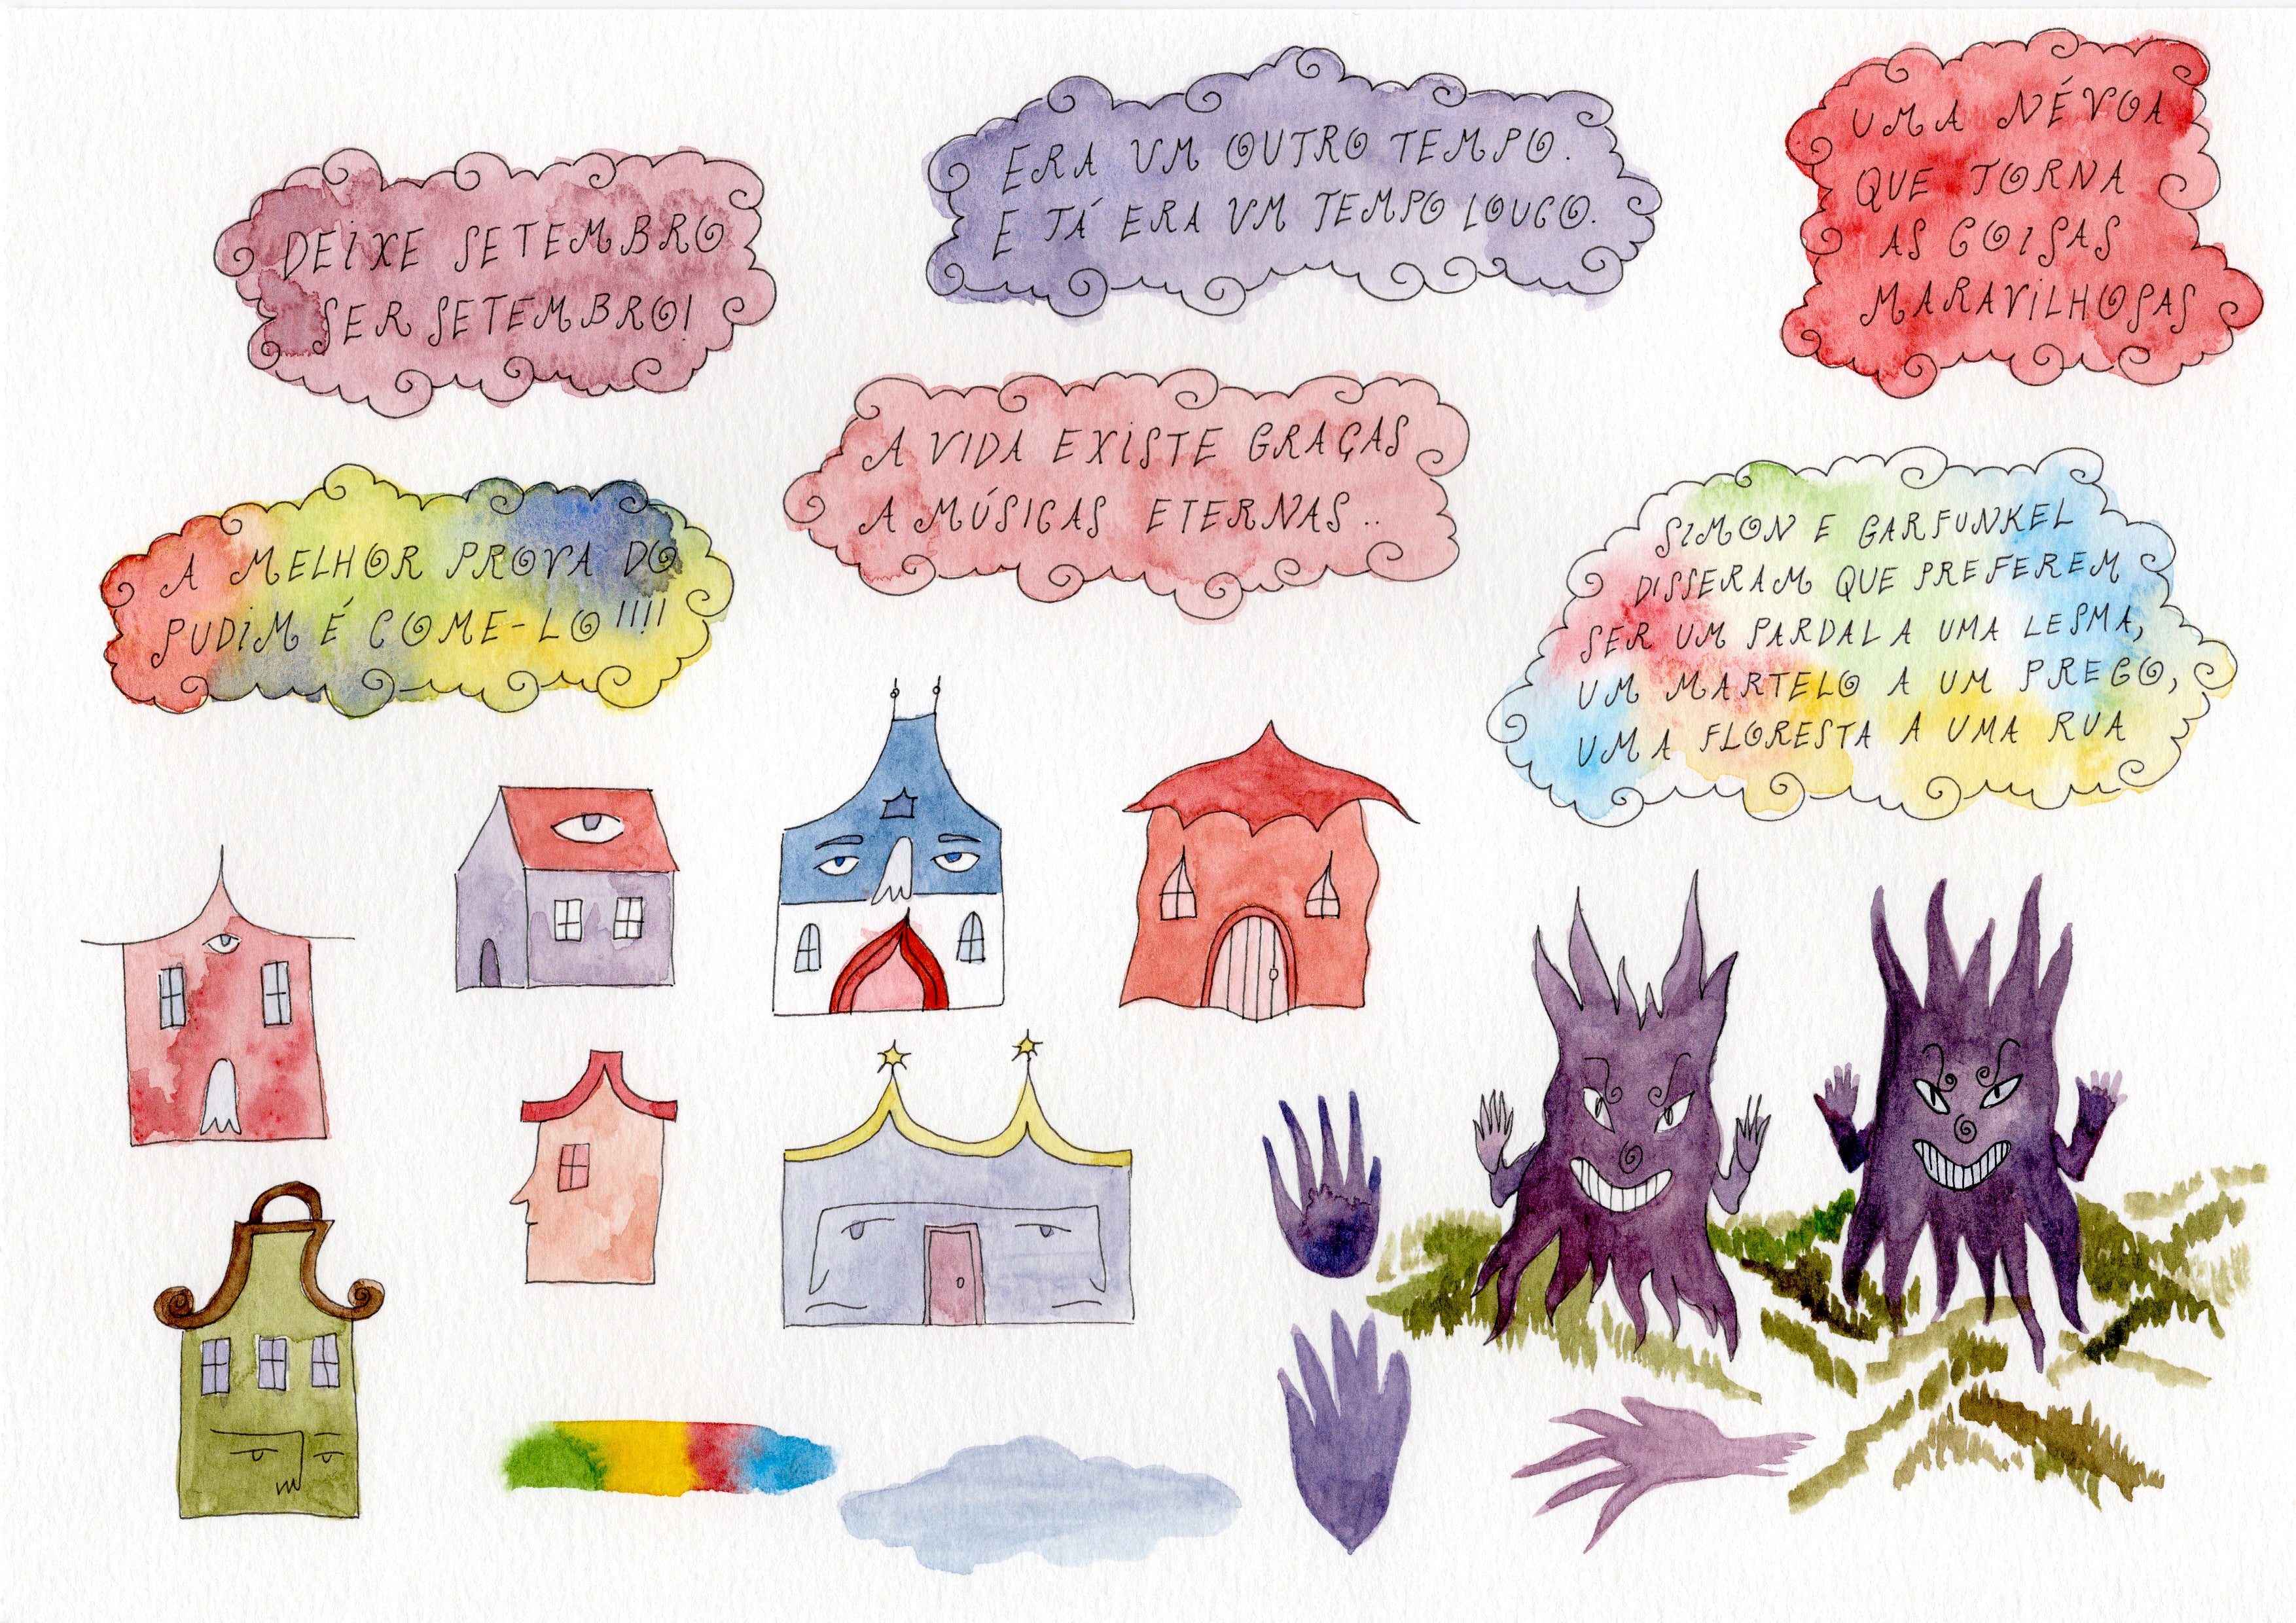 DEIXE SETEMBRO
SER SETEMBRO!
ERA UM OUTRO TEMPO.
E JÁ ERA UM TEMPO LOUCO.
UMA NÉVOA
QUE TORNA
AS COISAS
MARAVILHOSAS
A VIDA EXISTE GRAÇAS
A MÚSICAS ETERNAS..
A MELHOR PROVA DO
PUDIM É COME-LO!!!!
SIMON E GARFUNKEL
DISSERAM QUE PREFEREM
SER UM PARDAL A UMA LESMA,
UM MARTELO A UM PREGO,
UMA FLORESTA A UMA RUA